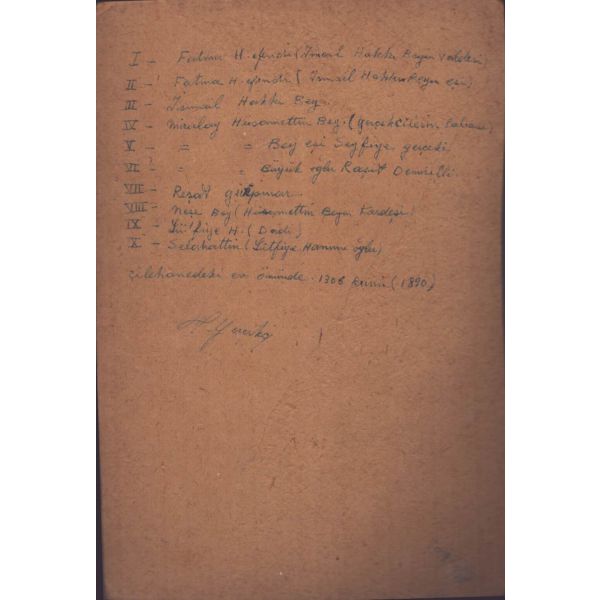 I - Fatma H. efendi (İsmail Hakkı Beyin validesi)
II - Fatma H. efendi (İsmail Hakkı Beyin eşi)
III - İsmail Hakkı Bey.
IV - Miralay Hüsamettin Bey. (gerçekcilerin babası)
V - " " Bey eşi Seyfiye gerçeki
VI - " " Büyük oğlu Raşit Demirelli
VII - Reşat gürpınar
VIII - Neşe Bey (Hüsamettin Beyin Kardeşi)
IX - Lütfiye H. (Dadı)
X - Selahattin (Lütfiye Hanımın oğlu)
Çilehanedeki ev önünde. 1306 (1890)